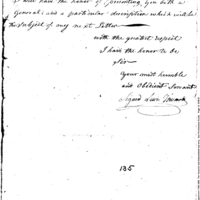 I will have the honor of presenting you with a
General; and a particular description which will be
the subject of my next Letter
with the greatest respect
I have the honor to be
Sir
Your most humble
and Obedient Servant
Signed
135